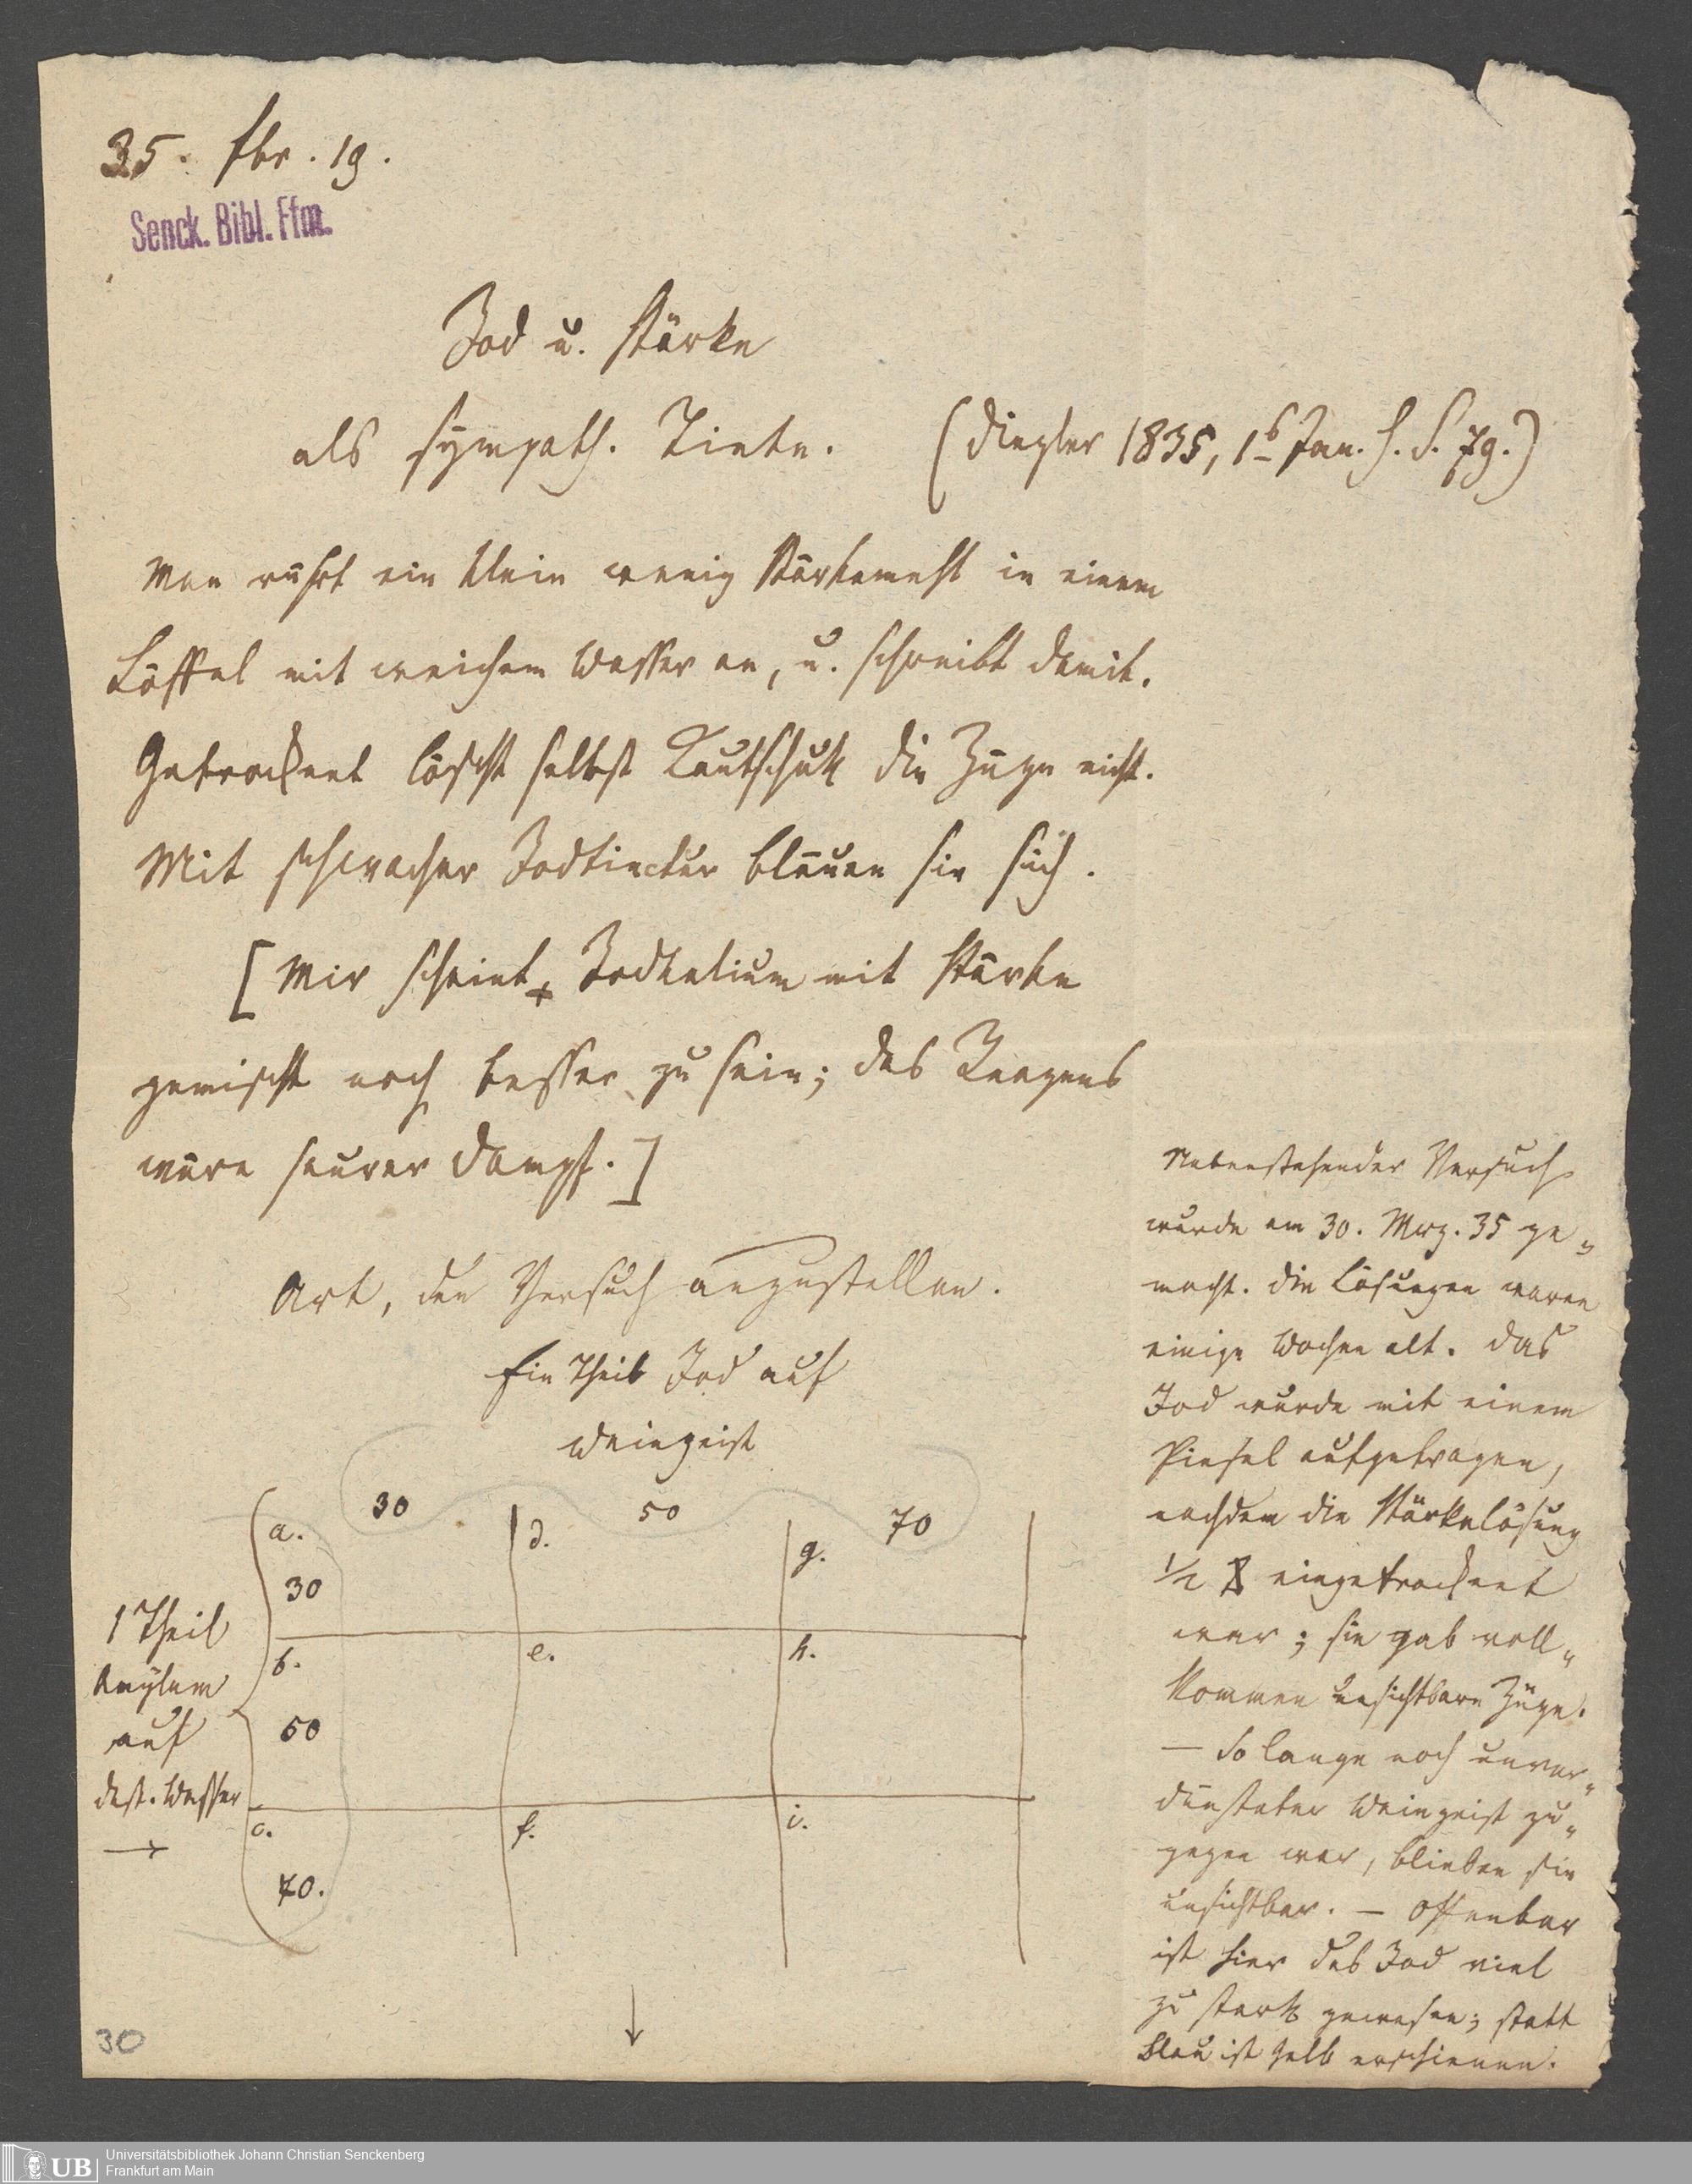 35. Fbr. 19.
Senck. Bibl. Ffm.
Jod u. Stärke
als sympath. Tinte. (Dingler 1835, 1s Jan. H. S. 79.)
Man rührt ein klein wenig Stärkemehl in einem
Löffel mit weichem Wasser an, u. schreibt damit.
Getrocknet löscht selbst Kautschuk die Züge nicht.
Mit schwacher Jodtinctur bläuen sie sich.
[Mir scheint Jodkalium mit Stärke
gemischt noch besser zu sein; das Reagens
wäre saurer Dampf.]
Art, den Versuch anzustellen.
Ein Theil Jod auf
Weingeist
30 50 70
a. d. g.
30
b. e. h.
50
c. f. i.
70.
1 Theil
Amylum
auf
dest. Wasser
→
↓
Nebenstehender Versuch
wurde am 30. Mrz. 35 ge„
macht. Die Lösungen waren
einige Wochen alt. Das
Jod wurde mit einem
Pinsel aufgetragen,
nachdem die Stärkelösung
1/2 eingetrocknet
war; sie gab voll„
kommen unsichtbare Züge.
— So lange noch unver„
dunsteter Weingeist zu„
gegen war, blieben sie
unsichtbar. — Offenbar
ist hier das Jod viel
zu stark gewesen; statt
blau ist gelb erschienen.
30
UB
Universitätsbibliothek Johann Christian Senckenberg
Frankfurt am Main